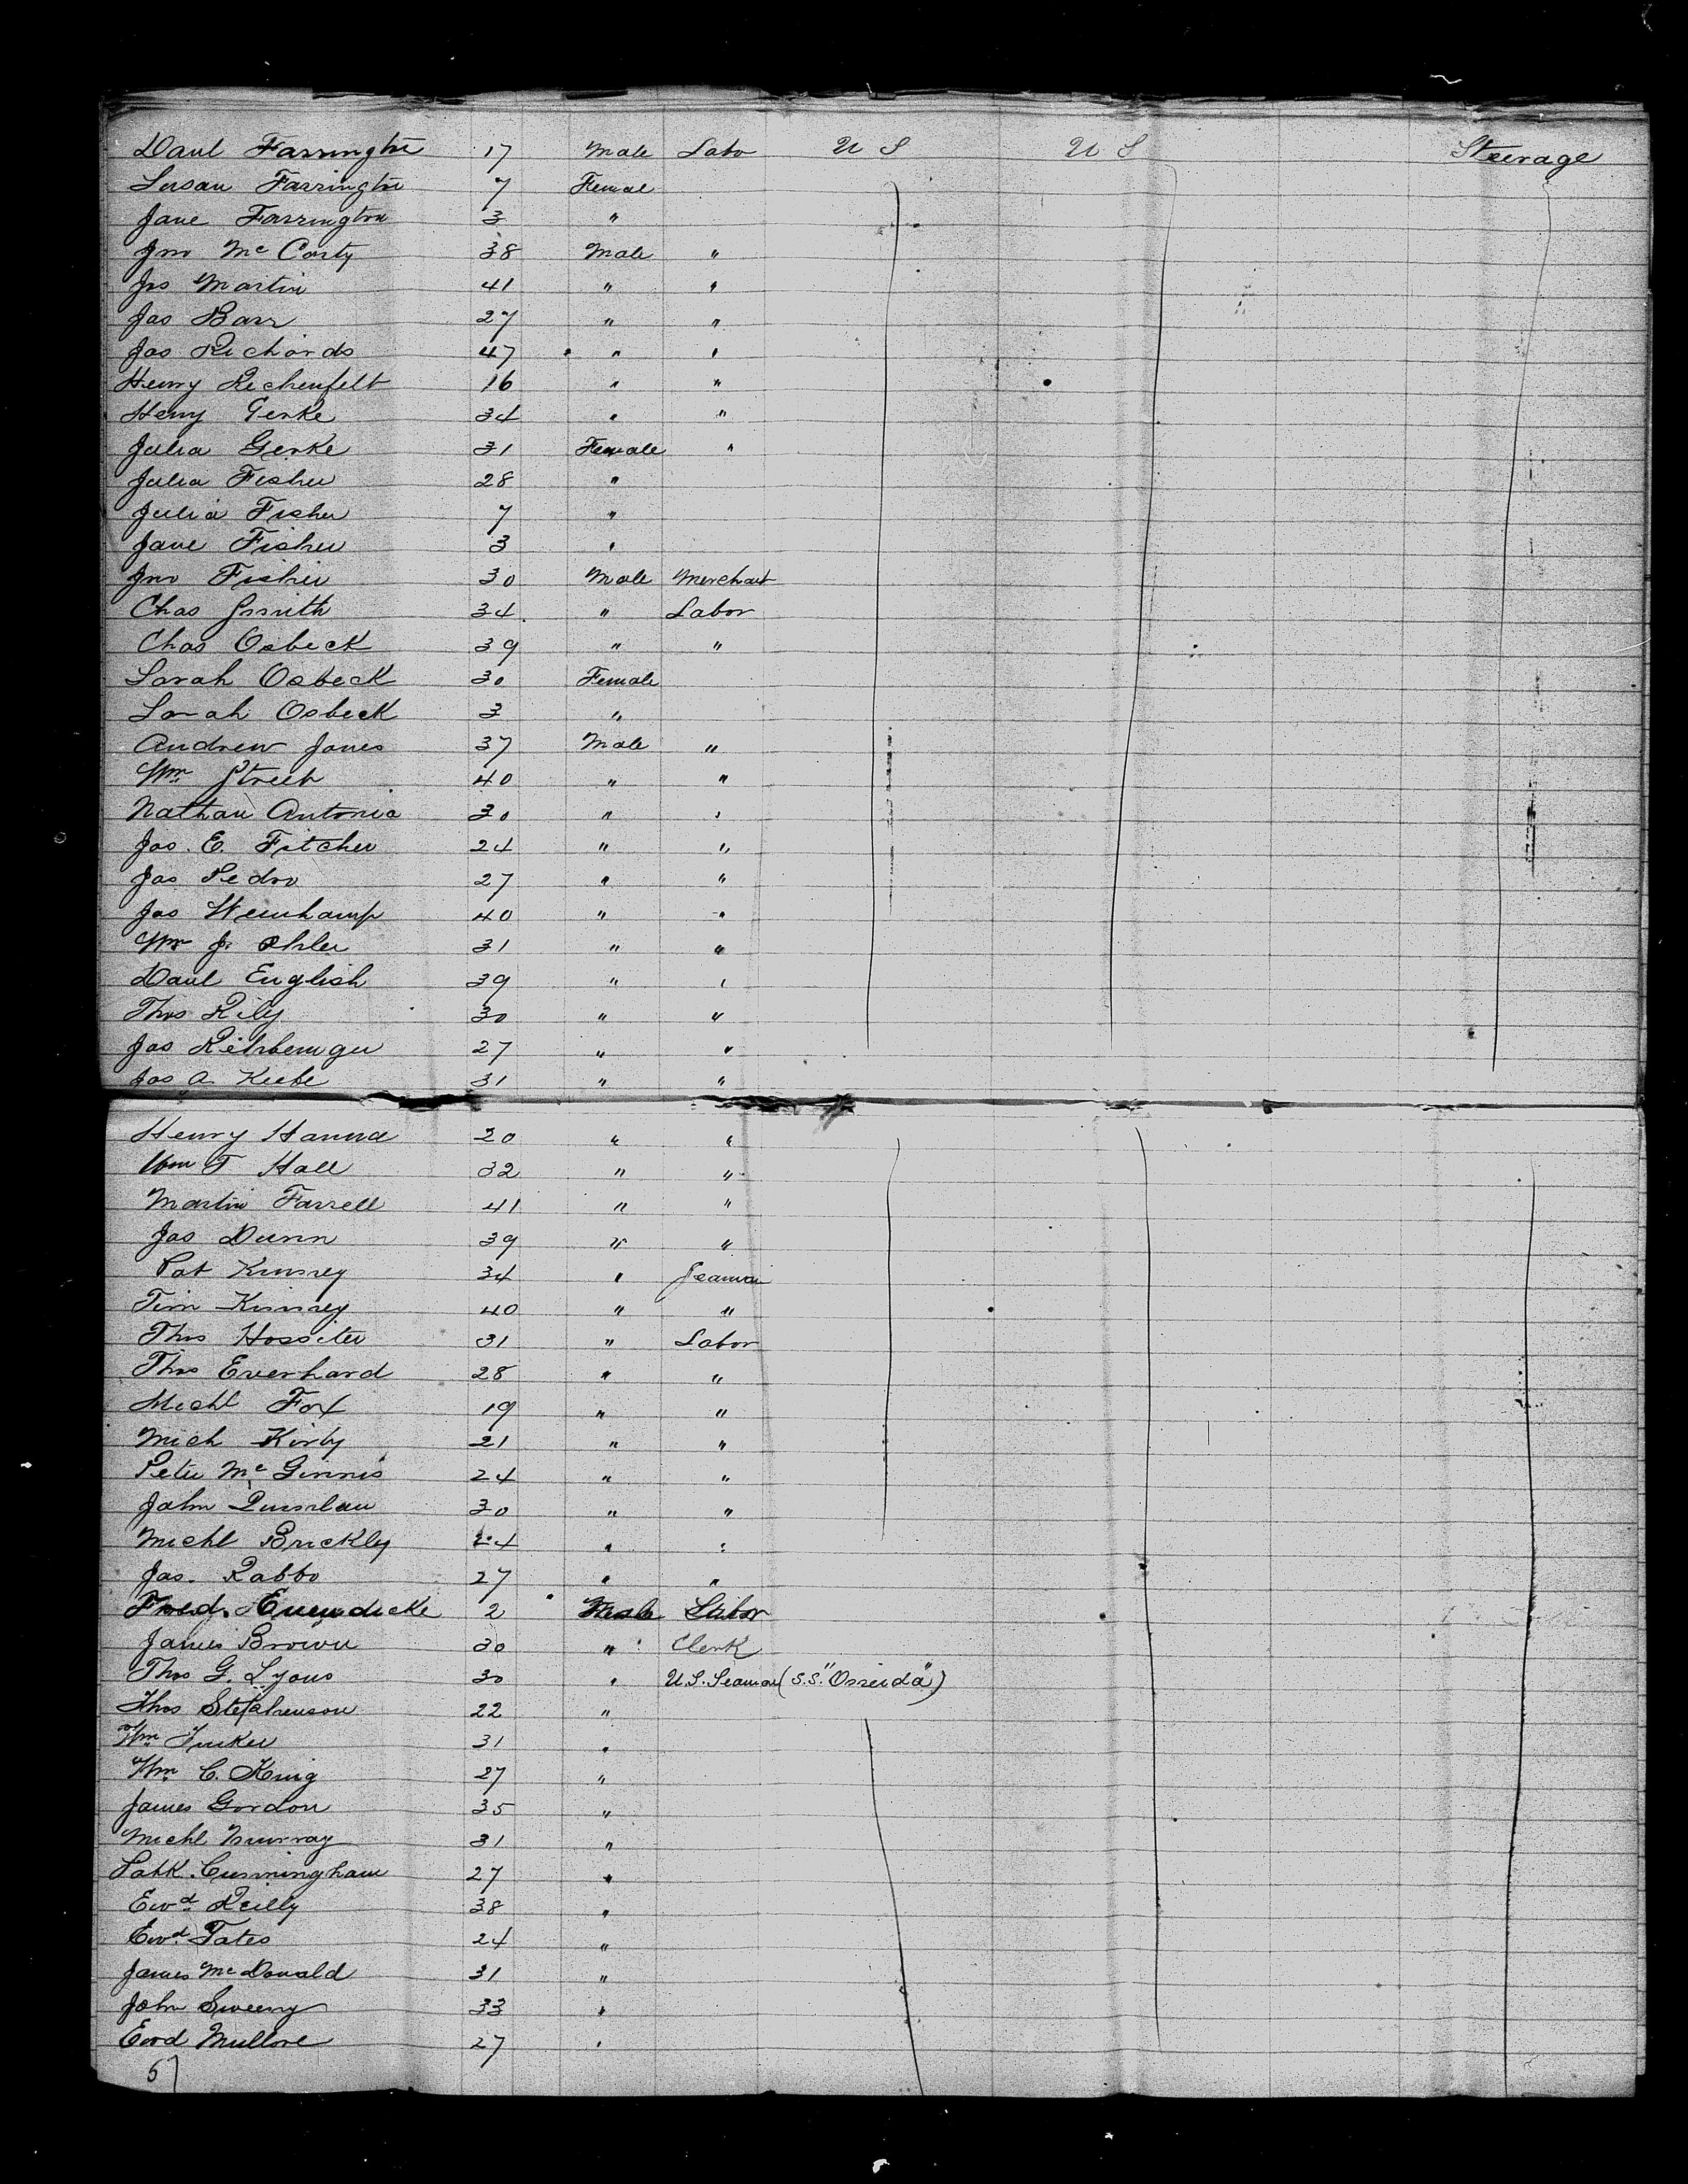 Danl Farrington 17 Male Labo U S U S Steerage
Susan Farrington 7 Femal
Jane Farrington 3 "
Jno McCarty 38 Male "
Jas Martin 41 " "
Jas Barr 27 " "
Jas Richards 47 " "
Henry Richenfelt 16 " "
Henry Gerke 34 " "
Julia Gerke 31 Female "
Julia Fisher 28 "
Julia Fisher 7 "
Jane Fisher 3 "
Jno Fisher 30 Male Merchant
Chas Smith 34 " Labor
Chas Osbeck 39 " "
Sarah Osbeck 30 Female
Sarah Osbeck 3 "
Andrew Jones 37 Male "
Wm Street 40 " "
Nathan Antonio 30 " "
Jas. E. Fitcher 24 " "
Jas Pedro 27 " "
Jas Weinhamp 40 " "
Wm J. Ohler 31 " "
Danl English 39 " "
Thos Rily 30 " "
Jas 27 " "
Jas A. Keefe 31 " "
Henry Hanna 20 " "
Wm T Hall 32 " "
Martin Farrell 41 " "
Jas Dunn 39 " "
Pat Kinsey 34 " Seaman
Tim Kinsey 40 " "
Thos Hossiter 31 " Labor
Thos Everhard 28 " "
Michl Fox 19 " "
Mich Kirby 21 " "
Peter McGinnis 24 " "
John Quinlan 30 " "
Michl Brickly 24 " "
Jas. Rabbo 27 " "
Fred. 2 Male Labor
James Brown 30 " Clerk
Thos G. Lyons 30 " U.S. Seaman (S.S. "Oneida")
Thos Stephenson 22 "
Wm Tucker 31 "
Wm C. King 27 "
James Gordon 35 "
Michl Murray 31 "
Patk. Cunningham 27 "
Ewd Reilly 38 "
Ewd Tates 24 "
James McDonald 31 "
John Sweeny 33 "
Ewd Mullone 27 "
57